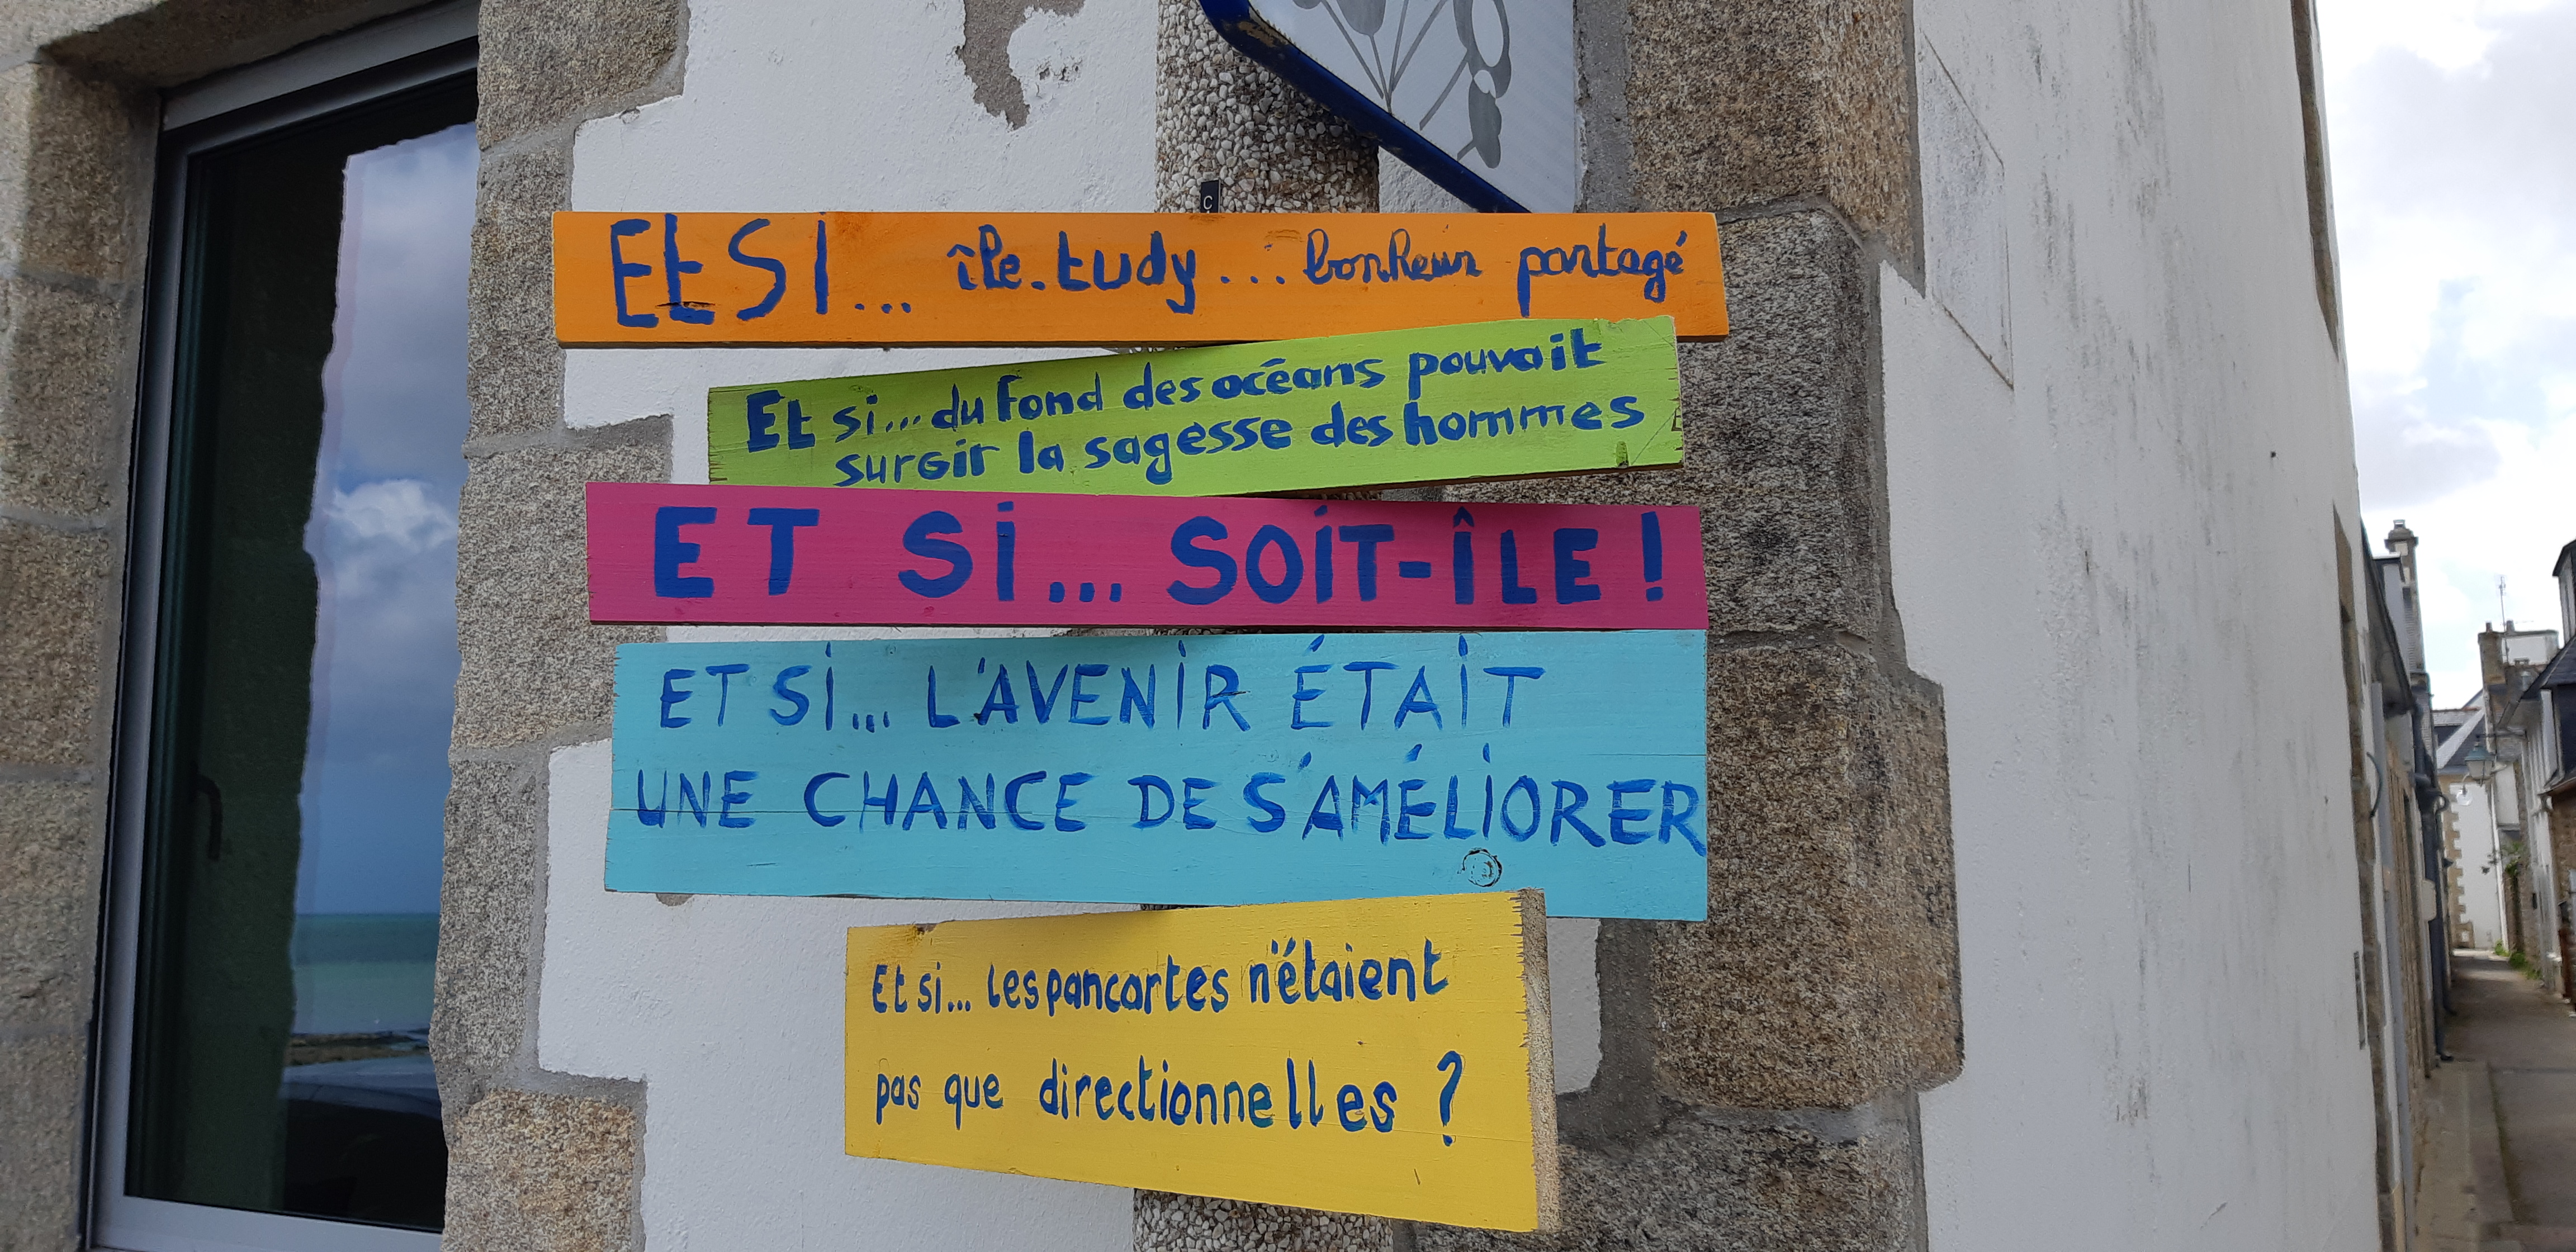 C
Et Si... île-tudy... bonheur partagé
Et si... du fond des océans pouvait
surgir la sagesse des hommes
ET Si... SOiT-ÎLE !
ET Si... L'AVENiR ÉTAiT
UNE CHANCE DE S'AMÉLiORER
Et si... les pancartes n'étaient
pas que directionnelles ?